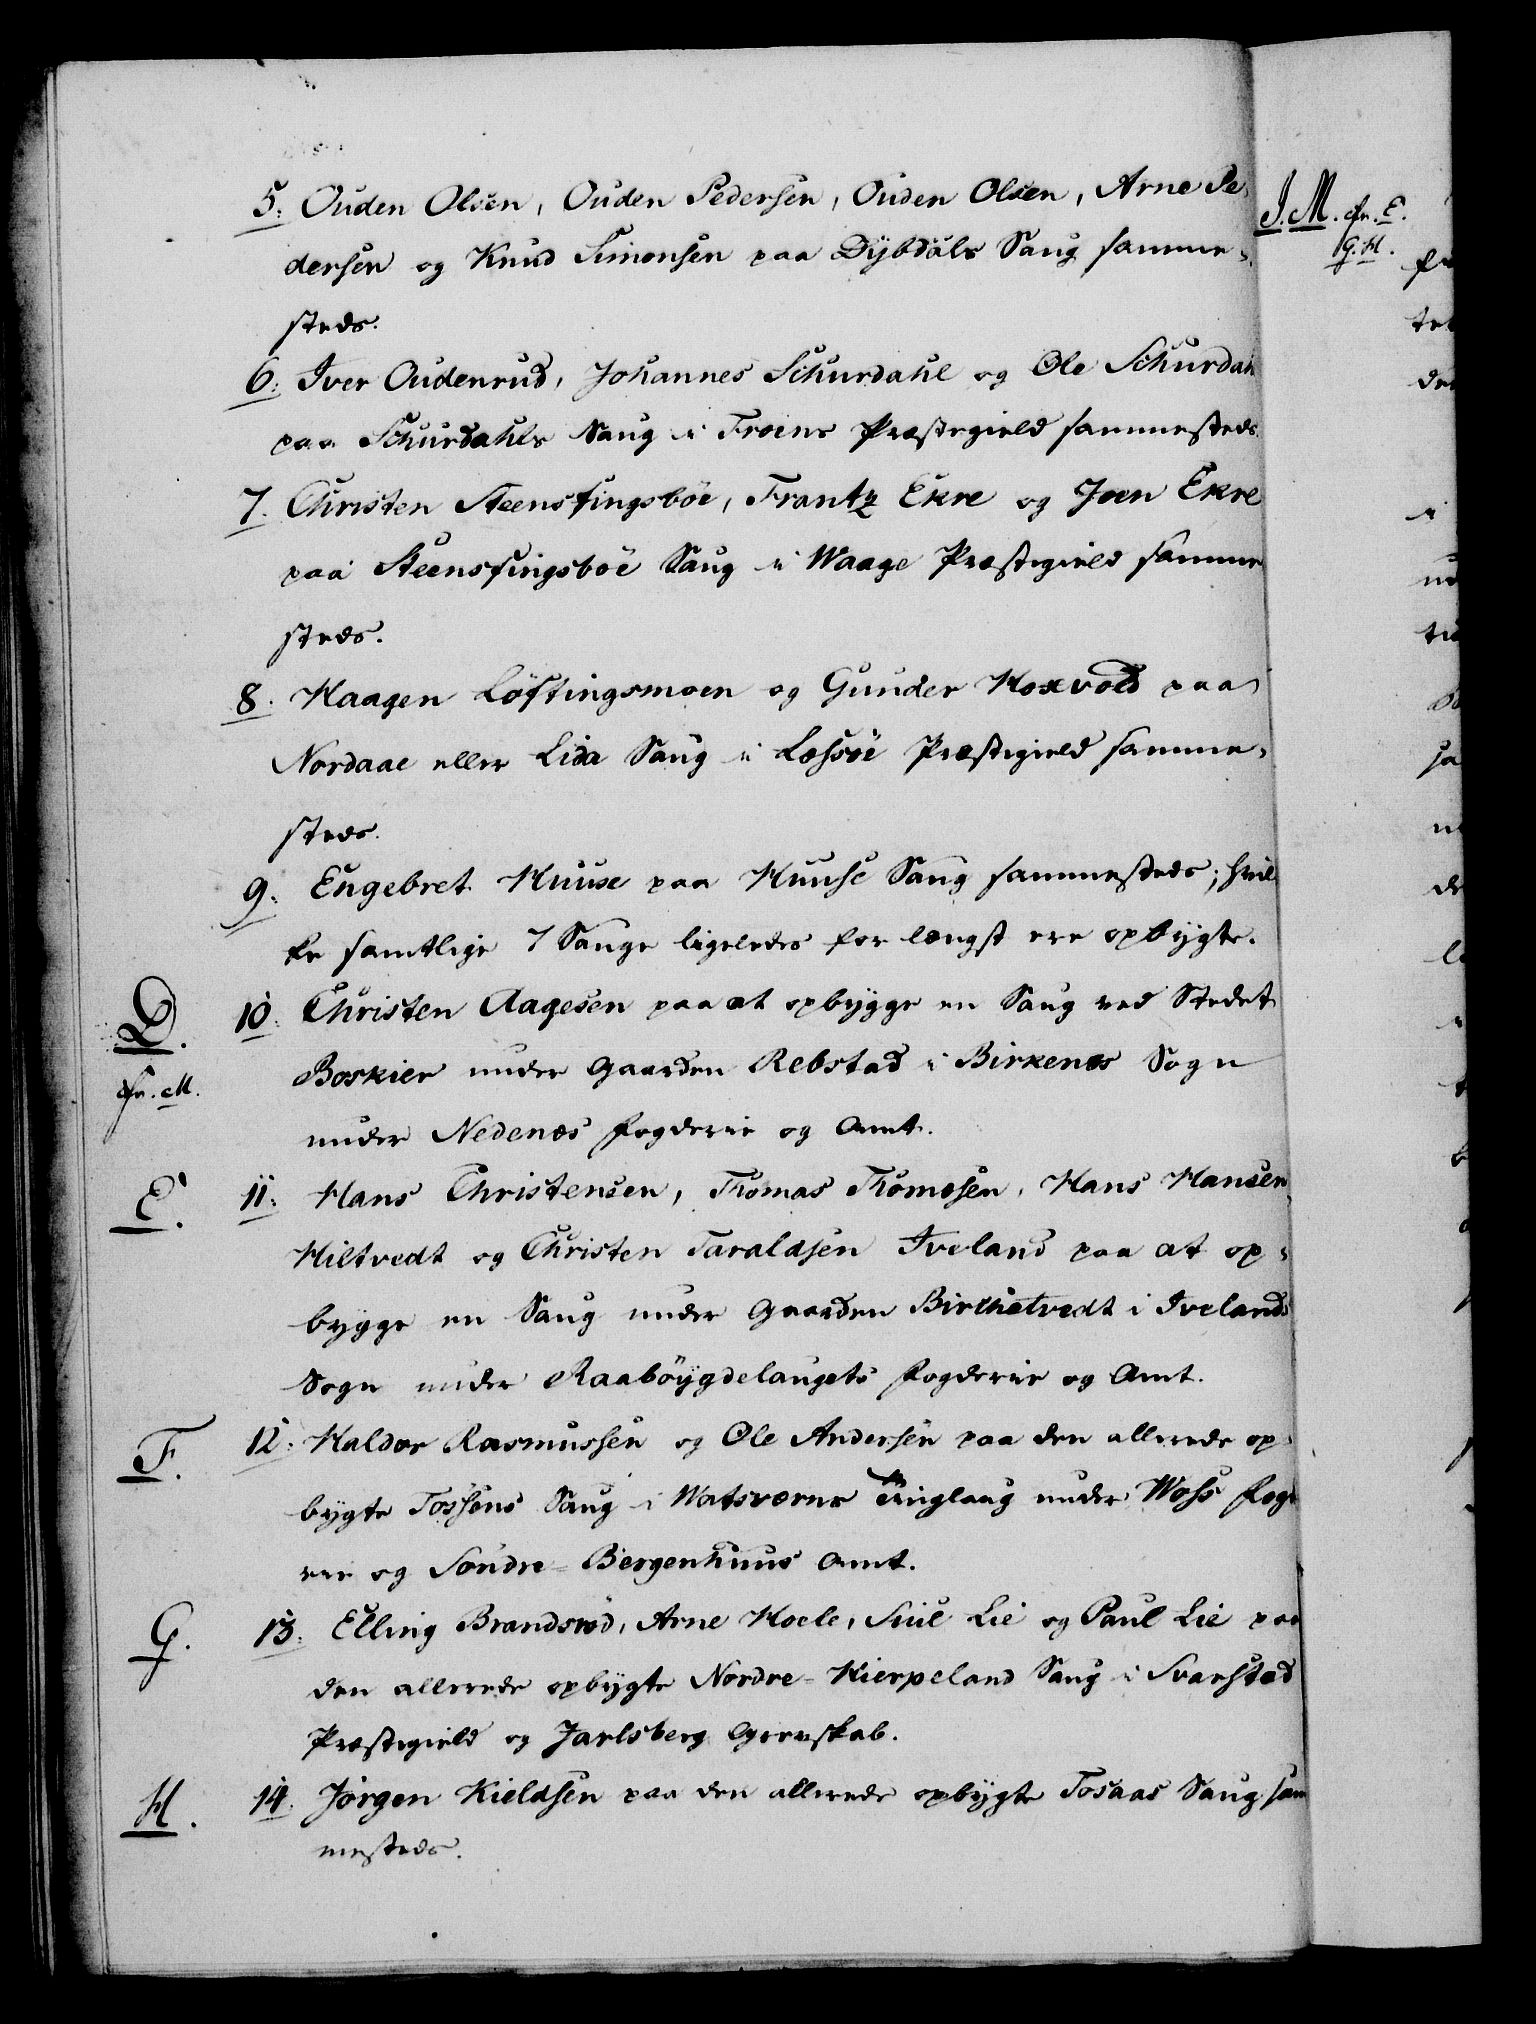 5. Ouden Olsen, Ouden Pedersen, Ouden Olsen, Arne Pe-
dersen og Knud Simensen paa Dybdals Saug samme-
steds.
6. Iver Oudenrud, Johannes Schurdahl og Ole Schurdahl
paa Schurdahls Saug i Froens Præstegield sammesteds.
7. Christen Steensfingsböe, Frantz Ekre og Joen Ekre
paa Steensfingsböe Saug i Waage Præstegield samme
steds.
8. Haagen Löftingsmoen og Gunder Hoxvold paa
Nordaae eller Lida Saug i Lessöe Præstegield samme-
steds.
9. Engebret Huuse paa Huuse Saug sammesteds; hvil
ke samtlige 7 Sauge ligeledes for længst ere opbygte.
D.
cfr. M.
10. Christen Aagesen paa at opbygge en Saug ved Stedet
Boskier under Gaarden Rebstad i Birkenes Sogn
under Nedenes Fogderie og Amt.
E.
11. Hans Christensen, Thomas Thomesen, Hans Hansen
Hiltvedt og Christen Taraldsen Iveland paa at op-
bygge en Saug under Gaarden Birchetvedt i Ivelands
Sogn under Raaböygdelaugets Fogderie og Amt.
F.
12. Haldor Rasmussen og Ole Andersen paa den allerede op-
bygte Tössens Saug i Watsværns Tinglaug under Woss Fogd
rie og Söndre-Bergenhuus Amt.
G.
13. Elling Brandsröd, Arne Hoele, Siul Lie og Paul Lie paa
den allerede opbygte Nordre-Hierpeland Saug i Svarstad
Præstegield og Jarlsberg Grevskab.
H.
14. Jörgen Kieldsen paa den allerede opbygte Tosaas Saug sam
mesteds.
I. M. cfr. E.
G. H.